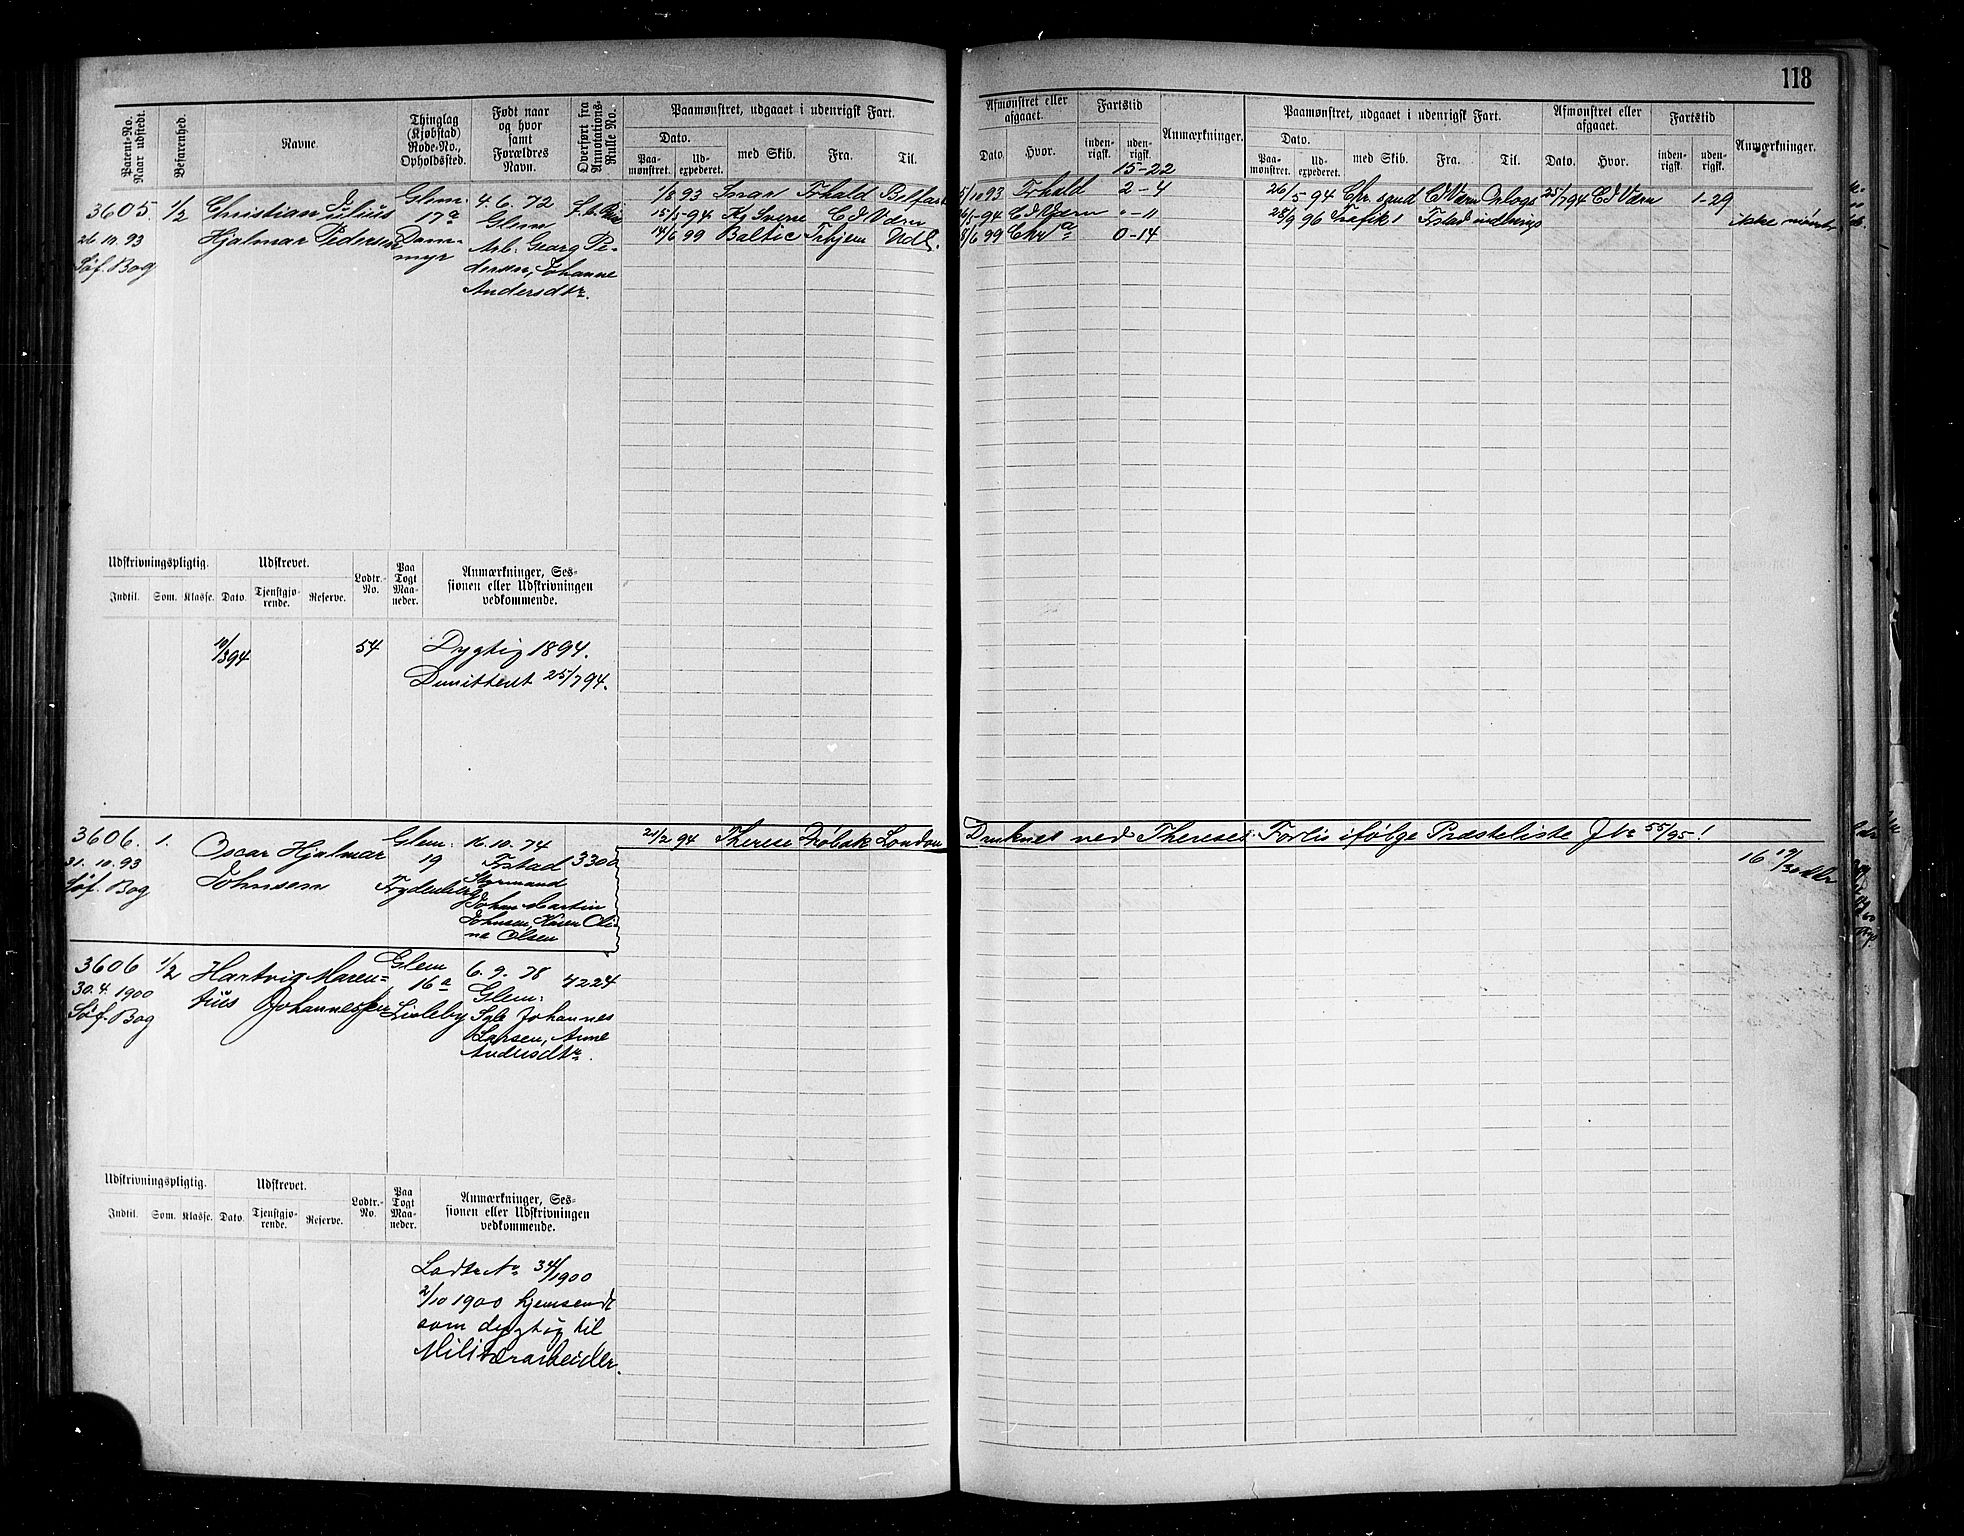 118
Patent-No. Naar udstedt.
Befarenhed.
Navne.
Thinglag (Kjøbstad) Rode-No., Opholdssted.
Født naar og hvor samt Forældres Navn.
Overført fra Annotations-Rulle No.
Paamønstret, udgaaet i udenrigsk Fart.
Dato.
Paamønstret. Udexpederet. med Skib. Fra. Til.
Afmønstret eller afgaaet.
Dato. Hvor.
Fartstid
indenrigsk. udenrigsk.
Anmærkninger.
Paamønstret, udgaaet i udenrigsk Fart.
Dato.
Paamønstret. Udexpederet. med Skib. Fra. Til.
Afmønstret eller afgaaet.
Dato. Hvor.
Fartstid
indenrigsk. udenrigsk.
Anmærkninger.
15-22
3605. 1/2 Christian Julius Glem. 4. 6. 72
26 10. 93 Hjalmar Pedersen 17a Glem
Søf. Bog Dammyr Arb. Georg Pe-
dersen, Johanne
Andersdtr.
1/6 93 Frhald Belfast 5/10 93 Frhald 2-4
15/5-94 Kg Sverre C J Værn 26/5-94 C J Værn "-11
14/6 99 Baltic Trhjem Udl. 8/6 99 Chra 0-14
26/5 94 Chr. sund C J Værn Orlogs 25/7 94 C J Værn 1-29
28/9 96 Trafik 1 Fstad indenrigs ikke mønstr
Udskrivningspligtig. Udskrevet. Lodtr.-No. Paa Togt Maaneder. Anmærkninger, Sessionen eller Udskrivningen vedkommende.
Indtil. Som. Klasse. Dato. Tjenstgjørende. Reserve.
10/3 94 54 Dygtig 1894.
Dimitteret 25/7 94.
3606. 1. Oscar Hjalmar Glem. 16. 10. 74
31. 10. 93 Johnsen 19 Fstad 3300
Søf. Bog Frydenberg Styrmand
Johan Martin
Johnsen, Karen Oli-
ne Olsen
21/2 94 Therese Drøbak London Druknet ved Thereses Forlis ifølge Præsteliste Jbr 55/95!
16 19/3
3606 1/2 Hartvig Maren- Glem 6. 9. 78 4224
30. 4. 1900 tius Johannessen 16a Glem.
Søf. Bog Lisleby Sgb Johannes
Larsen, Anne
Andersdtr.
Udskrivningspligtig. Udskrevet. Lodtr.-No. Paa Togt Maaneder. Anmærkninger, Sessionen eller Udskrivningen vedkommende.
Indtil. Som. Klasse. Dato. Tjenstgjørende. Reserve.
Lodtr No 34/1900
2/10 1900 hjemsendt
som dygtig til
Militærarbeider.